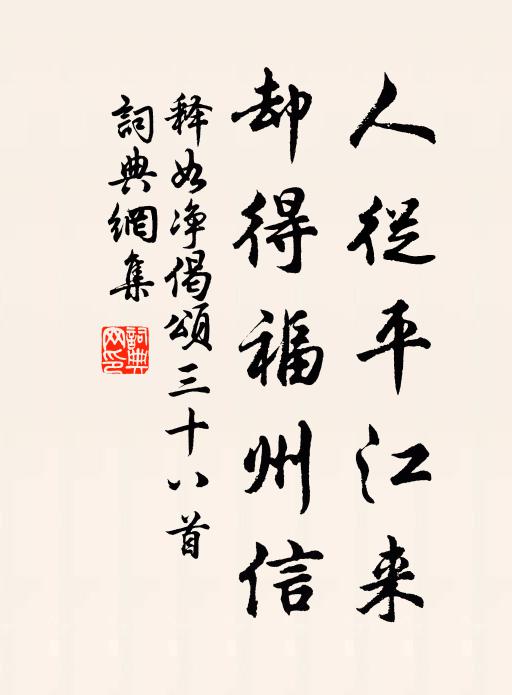 人從平江来
却得福州信
释如净偈頌三十八首
詞典網集
詞典网印